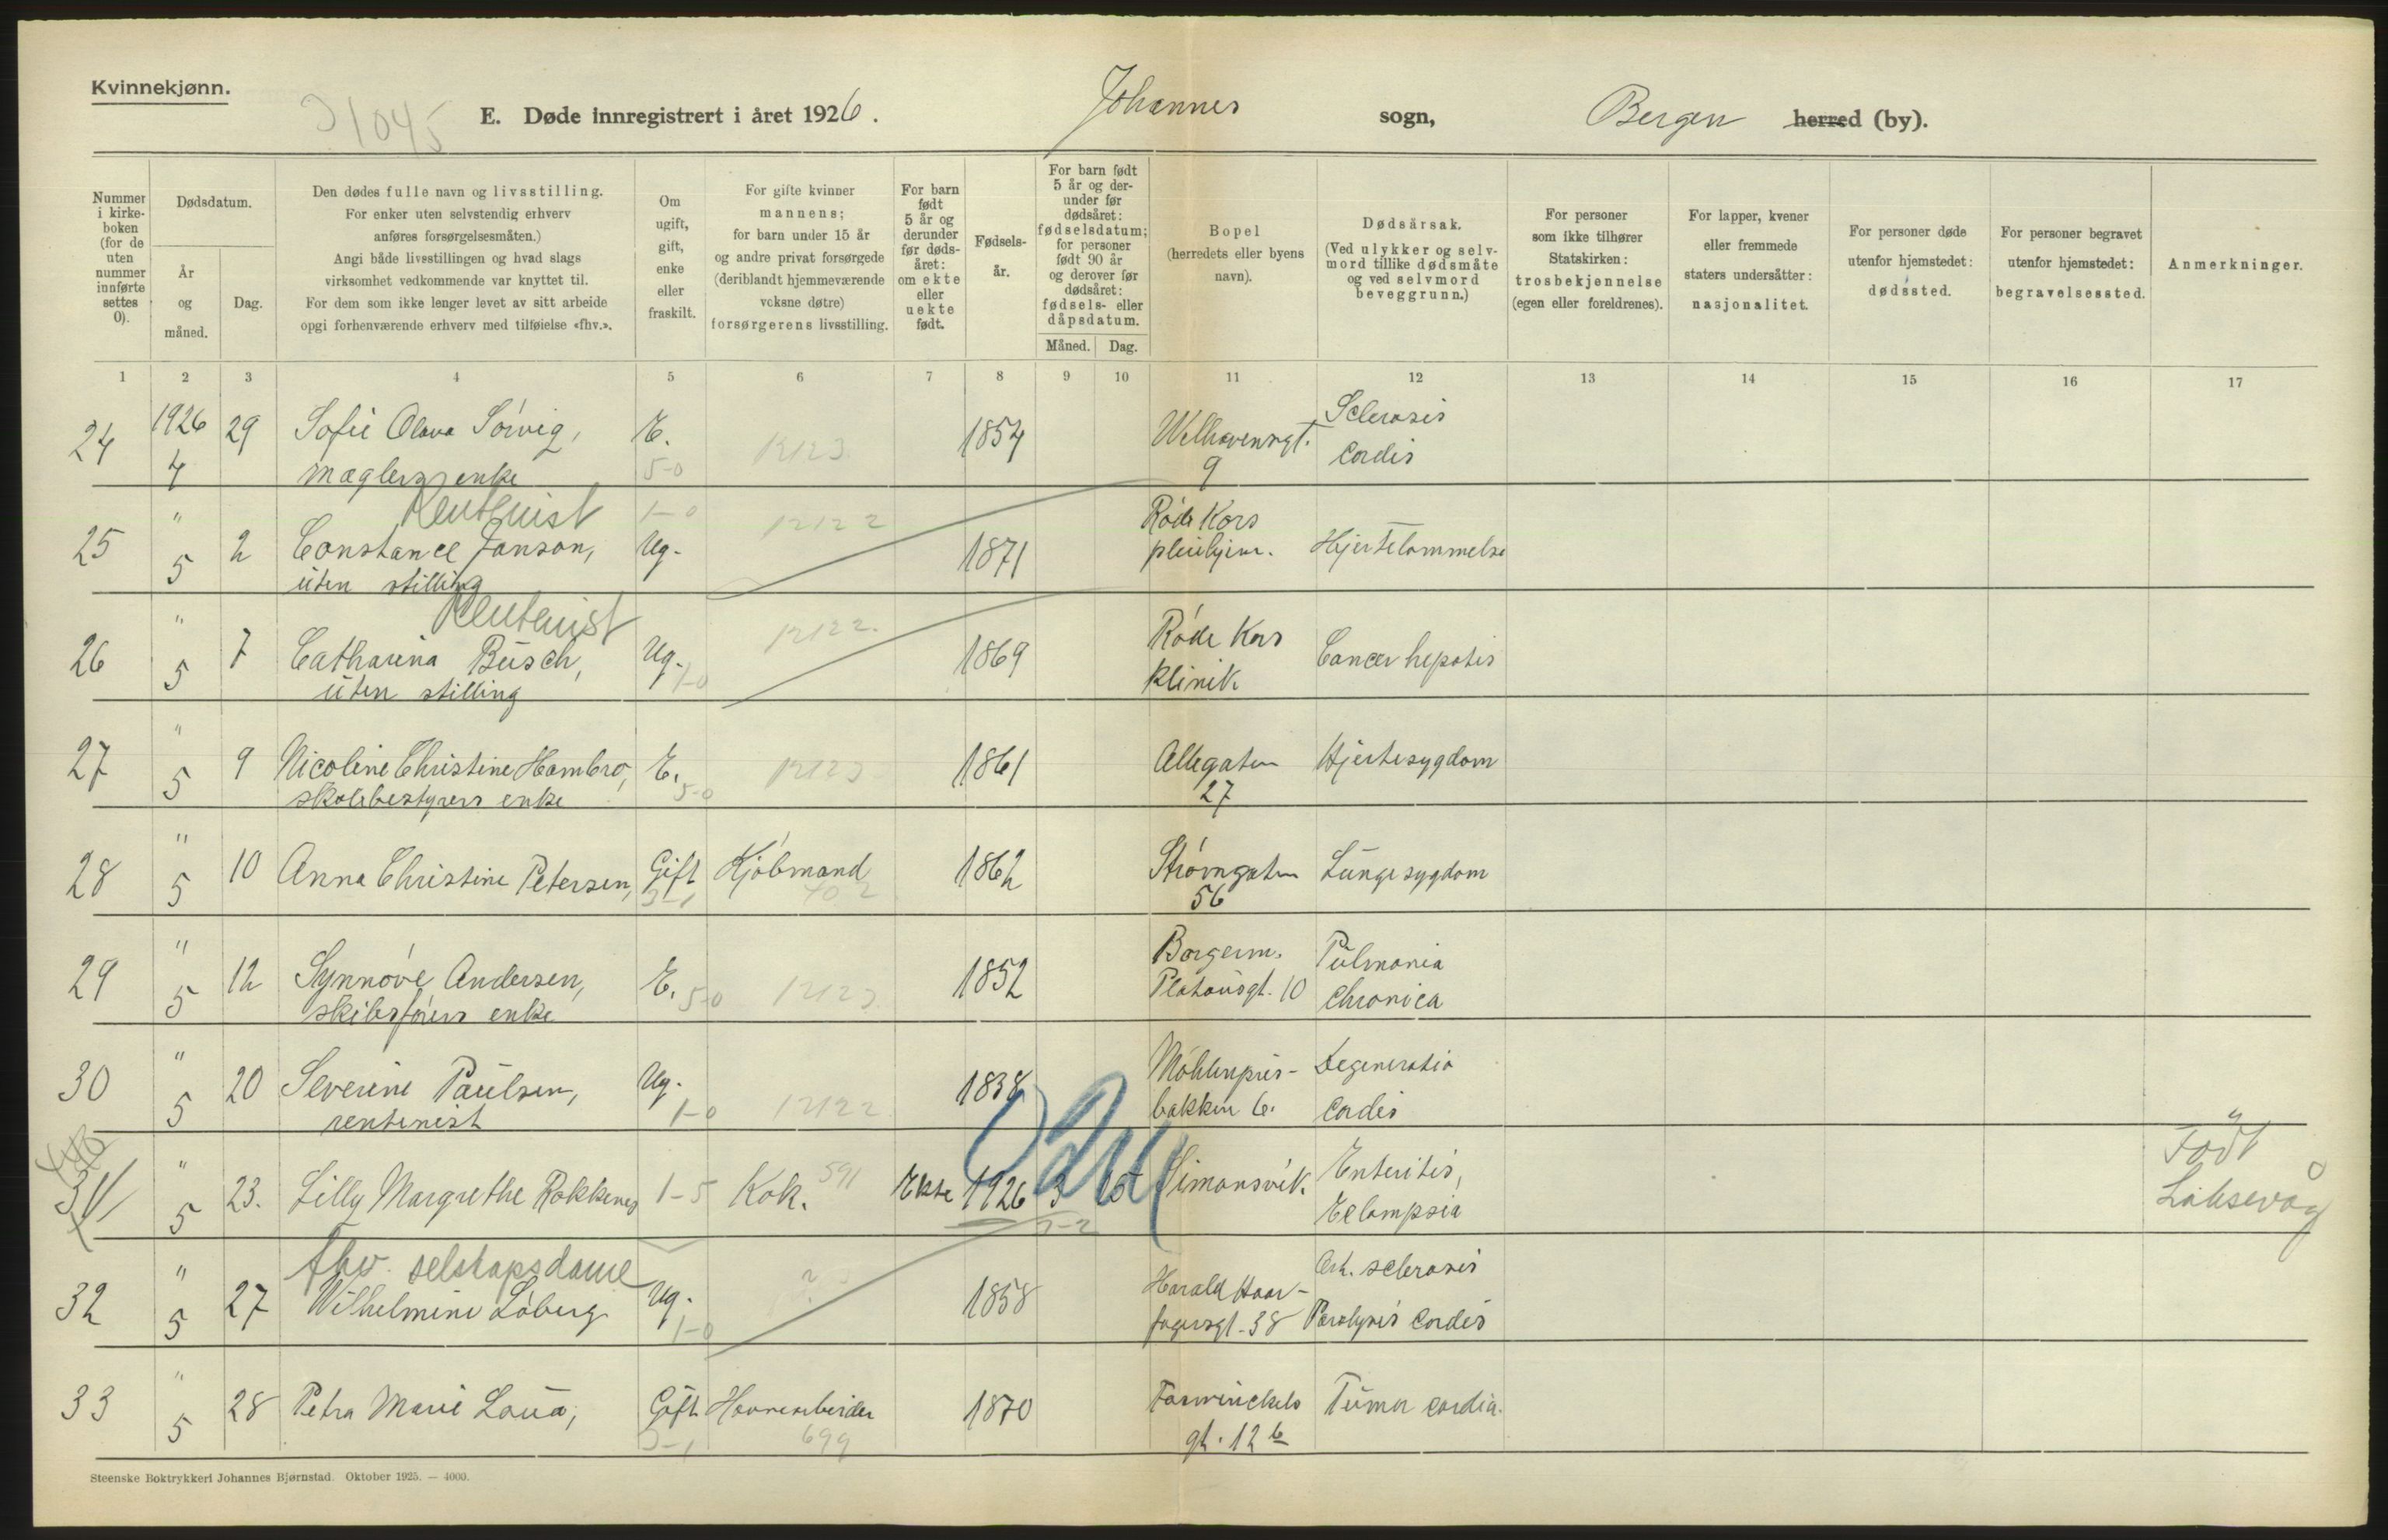 Kvinnekjønn.
1045
E. Døde innregistrert i året 1926. Johannes sogn, Bergen herred (by).
Nummer i kirkeboken (for de uten nummer innførte settes 0).
Dødsdatum.
År og måned.
Dag.
Den dødes fulle navn og livsstilling.
For enker uten selvstendig erhverv
anføres forsørgelsesmåten.)
Angi både livsstillingen og hvad slags
virksomhet vedkommende var knyttet til.
For dem som ikke lenger levet av sitt arbeide
opgi forhenværende erhverv med tilføielse «fhv.».
Om ugift, gift, enke eller fraskilt.
For gifte kvinner
mannens;
for barn under 15 år
og andre privat forsørgede
(deriblandt hjemmeværende
voksne døtre)
forsørgerens livsstilling.
For barn født 5 år og derunder før dødsåret: om ekte eller uekte født.
Fødselsår.
For barn født 5 år og derunder før dødsåret: fødselsdatum; for personer født 90 år og derover før dødsåret: fødsels- eller dåpsdatum.
Måned. Dag.
Bopel
(herredets eller byens navn).
Dødsårsak.
(Ved ulykker og selvmord tillike dødsmåte og ved selvmord beveggrunn.)
For personer som ikke tilhører Statskirken: trosbekjennelse (egen eller foreldrenes).
For lapper, kvener eller fremmede staters undersåtter: nasjonalitet.
For personer døde utenfor hjemstedet: dødssted.
For personer begravet utenfor hjemstedet: begravelsessted.
Anmerkninger.
1 2 3 4 5 6 7 8 9 10 11 12 13 14 15 16 17
24 1926 4 29 Sofie Olava Sørvig, E. 12123 1854 Welhavensgt. Sclerosis
mæglers enke 5-0 9 Cordis
Rentenist 1-0 12122 Røde Kors
25 " 5 2 Constance Janson, Ug. 1871 pleiehjem. Hjertelammelse
uten stilling
Rentenist
26 " 5 7 Catharina Busch, Ug. 1-0 12122. 1869 Røde Kors Cancer hepatis
uten stilling Klinik
27 " 5 9 Nicoline Christine Hambro, E. 5-0 12123 1861 Allegaten Hjertesygdom
skolebestyrers enke 27
28 " 5 10 Anna Christine Petersen, Gift Kjøbmand 1862 Strømgaten Lungesygdom
3-1 702 56
29 " 5 12 Synnøve Andersen, E. 5-0 12123. 1852 Borgerm. Pulmonia
skibsførers enke Platousgt. 10 Chronica
30 " 5 20 Severine Paulsen, Ug. 1838 Møhlenpris- Degeneratio
rentenist 1-0 12122 bakken 6. Cordis
31 " 5 23. Lilly Margrethe Rokkenes 1-5 Kok. 591 Ekte 1926 3 Simonsvik. Enteritis, Født
Eclampsia Laksevåg
fhv. selskapsdame
32 " 5 27 Wilhelmine Løberg Ug. 1-0 ? 1858 Harald Haar- Art. sclerosis
fagersgt. 38 Paralysis Cordis
33 " 5 28 Petra Marie Loua, Gift Havnearbeider 1870 Fosswinckels Tumor cardia.
3-1 699 gt. 12 b
Steenske Boktrykkeri Johannes Bjørnstad. Oktober 1925. — 4000.